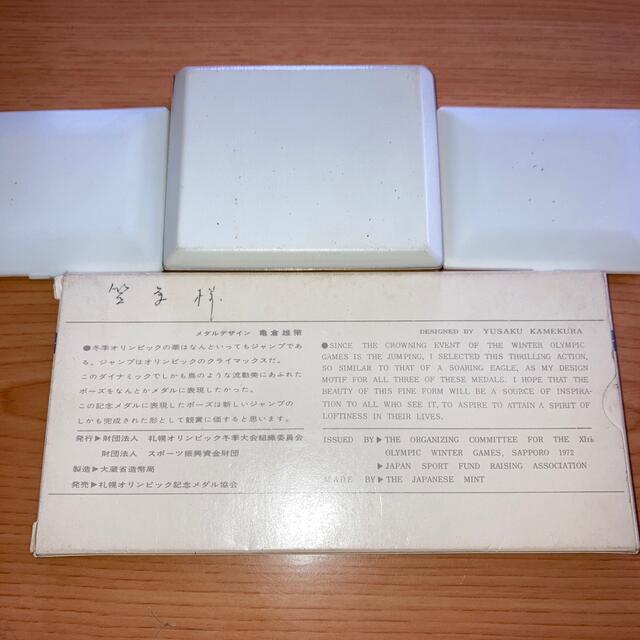 様
メダルデザイン 亀倉雄策
●冬季オリンピックの華はなんといってもジャンプであ
る。ジャンプはオリンピックのクライマックスだ。
このダイナミックでしかも鳥のような流動美にあふれた
ポーズをなんとかメダルに表現したかった。
この記念メダルに表現したポーズは新しいジャンプの
しかも完成された形として観賞に価すると思います。
発行▶財団法人 札幌オリンピック冬季大会組織委員会
財団法人 スポーツ振興資金財団
製造▶大蔵省造幣局
発売▶札幌オリンピック記念メダル協会
DESIGNED BY YUSAKU KAMEKURA
●SINCE THE CROWNING EVENT OF THE WINTER OLYMPIC
GAMES IS THE JUMPING, I SELECTED THIS THRILLING ACTION,
SO SIMILAR TO THAT OF A SOARING EAGLE, AS MY DESIGN
MOTIF FOR ALL THREE OF THESE MEDALS. I HOPE THAT THE
BEAUTY OF THIS FINE FORM WILL BE A SOURCE OF INSPIRA-
TION TO ALL WHO SEE IT, TO ASPIRE TO ATTAIN A SPIRIT OF
LOFTINESS IN THEIR LIVES.
ISSUED BY▶THE ORGANIZING COMMITTEE FOR THE XIth
OLYMPIC WINTER GAMES, SAPPORO 1972
▶JAPAN SPORT FUND RAISING ASSOCIATION
MADE BY▶THE JAPANESE MINT